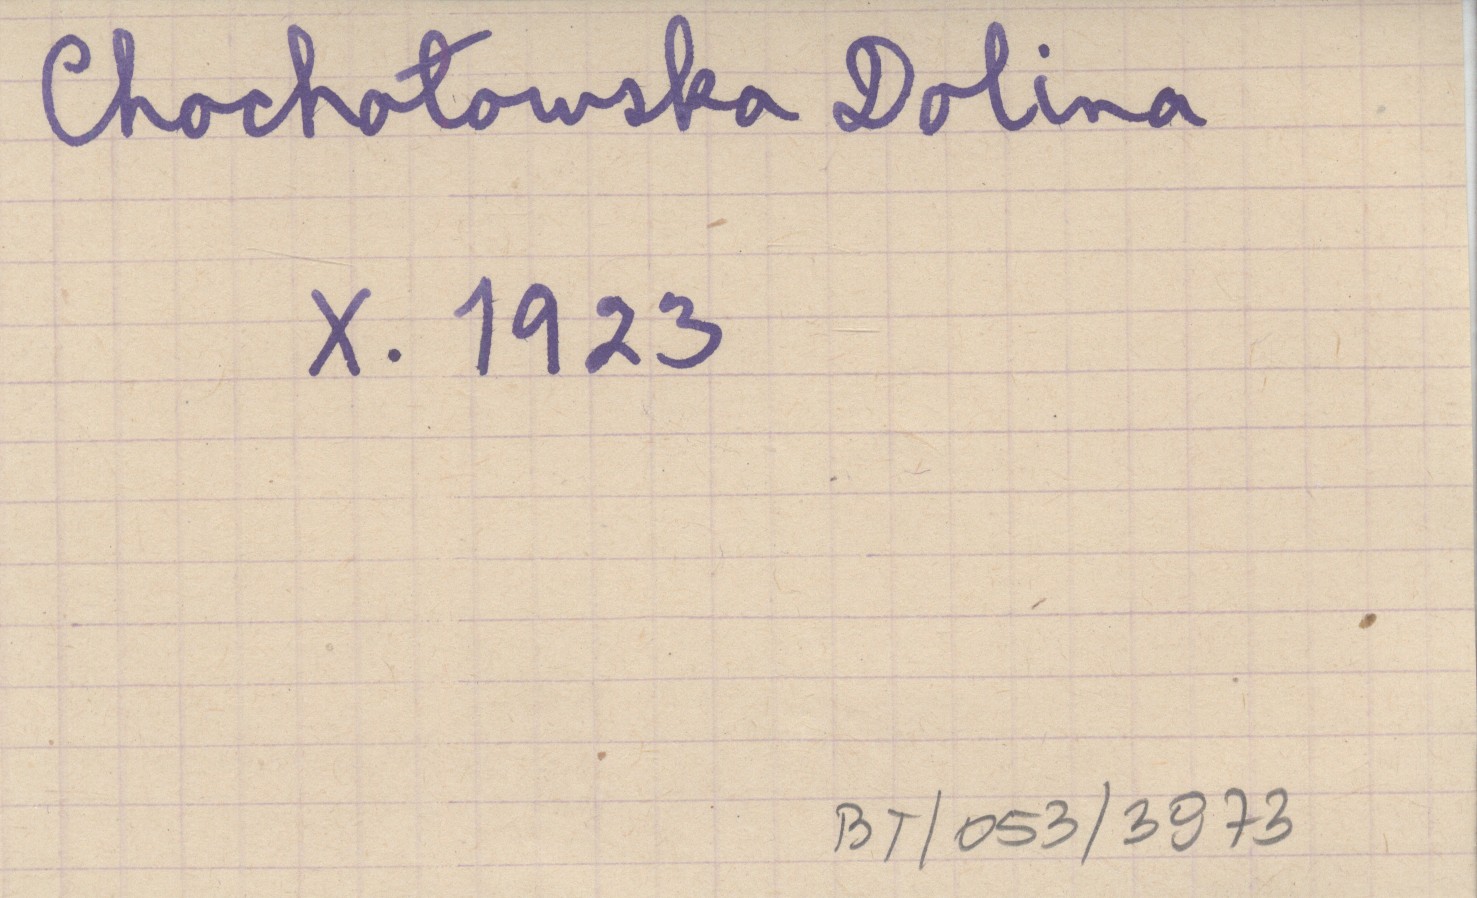 Chochołowska Dolina
X. 1923
BT/053/3973